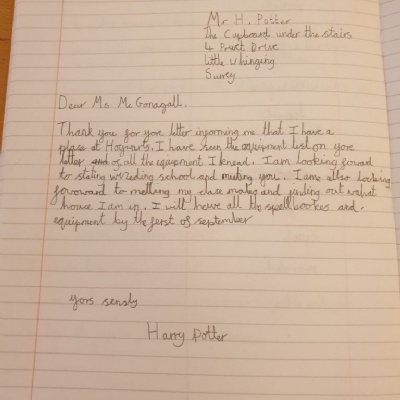 Mr H. Potter
The Cupboard under the stairs
4 Privet Drive
little whinging
Surrey
Dear Ms McGonagall.
Thank you for yore letter informing me that I have a
place at Hogwars. I have seen the equipment list on yore
letter and of all the equipment I knead. I am looking foward
to stating wizeding school and meeting you. I ame also looking
forword to metting my class mates and finding out what
house I am in. I will have all the spell bookes and
equipment by the ferst of september
yors sensly
Harry Potter